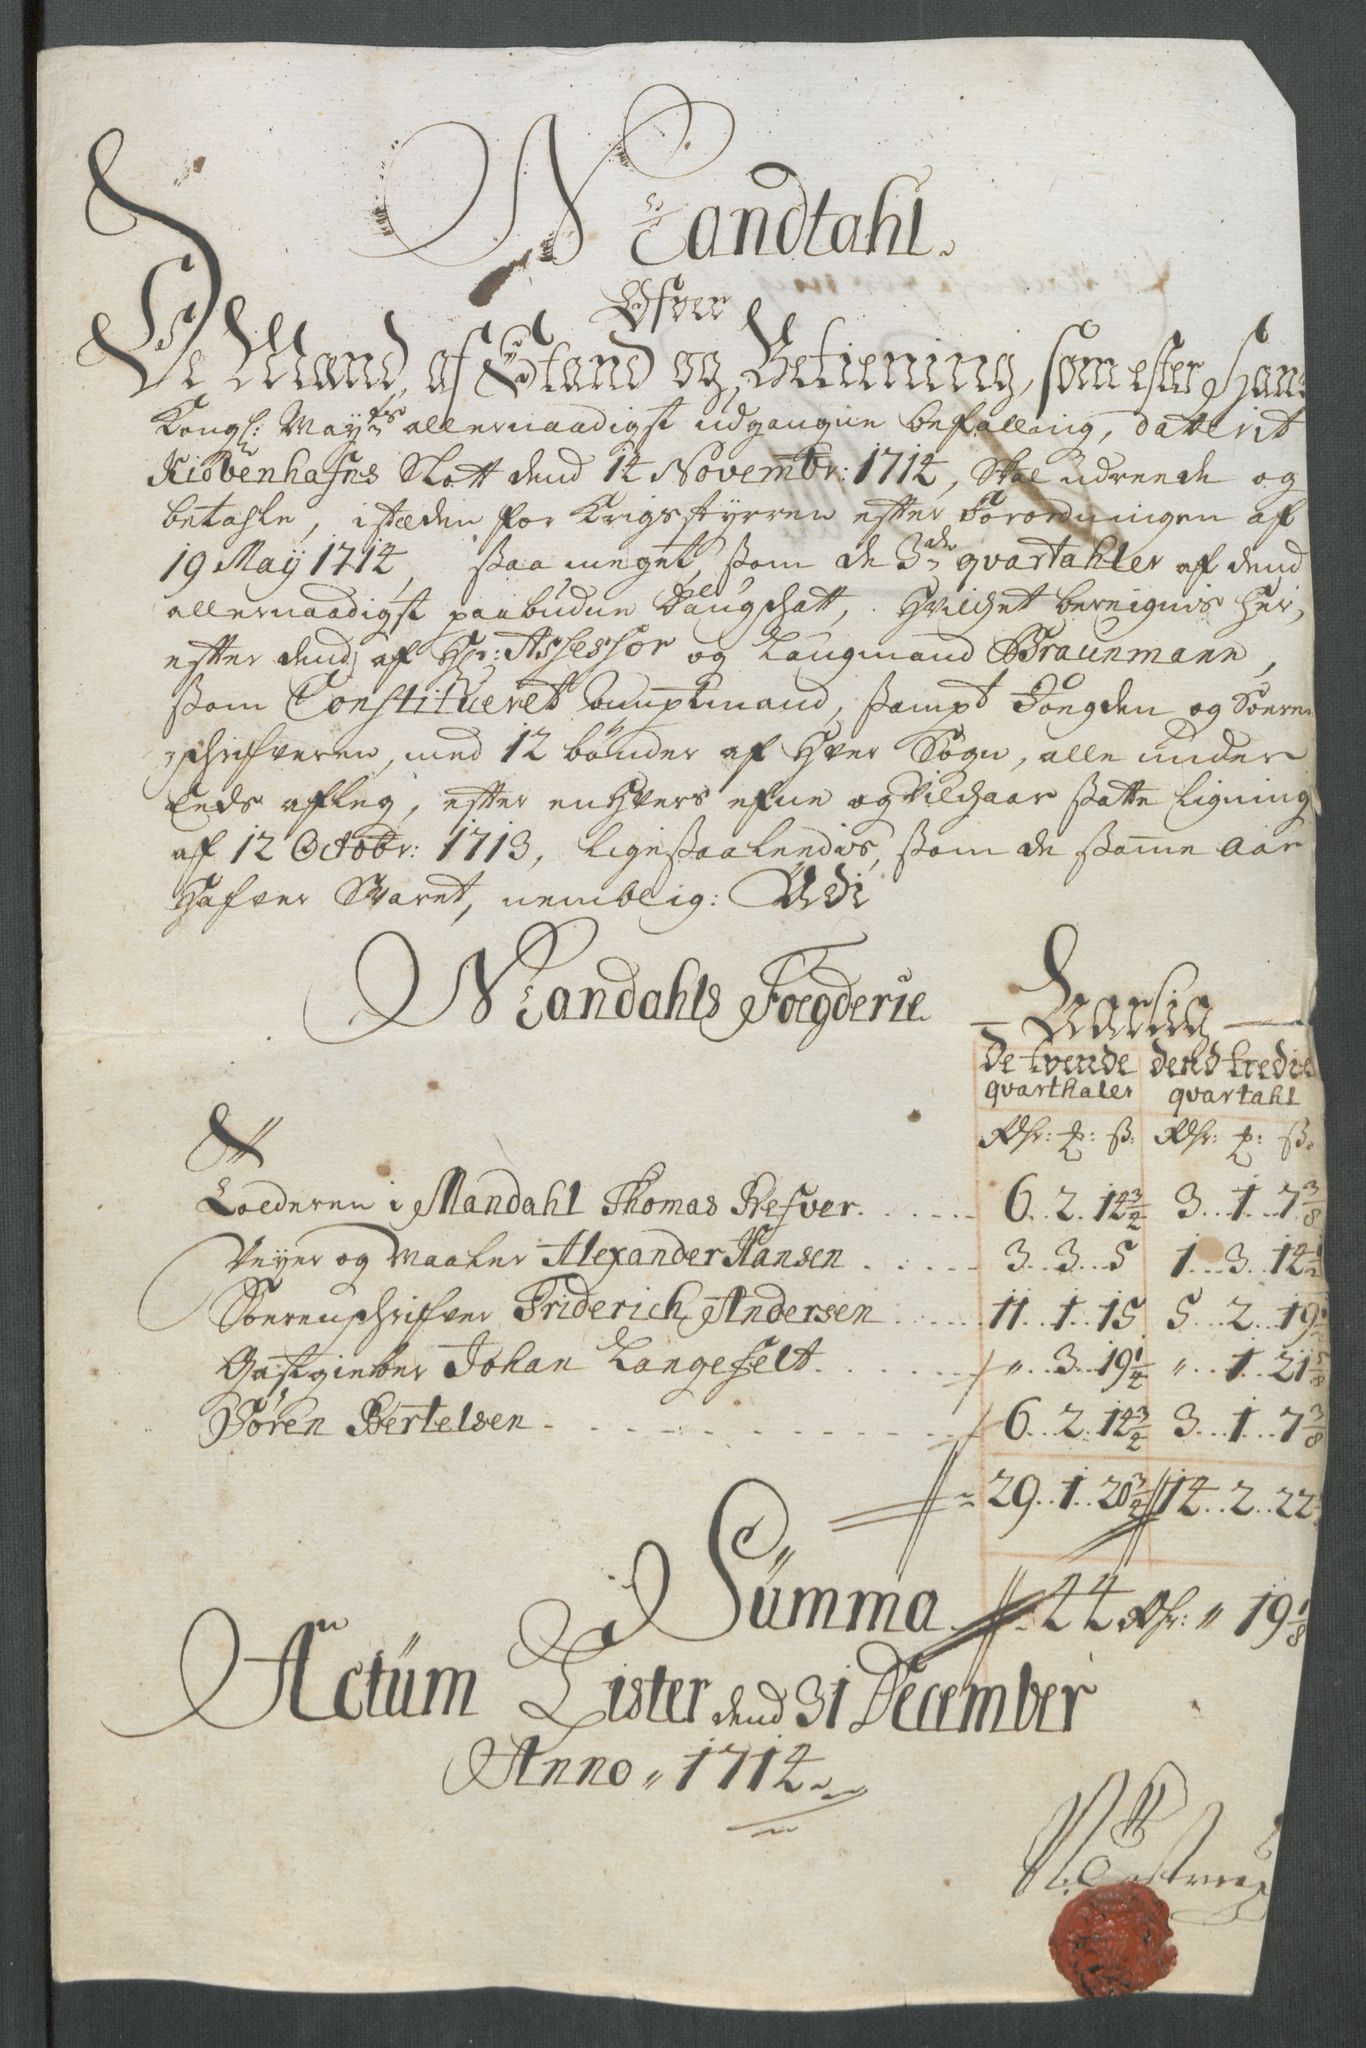 Mandtahl
Ofver
De Mænd, af Stand og Betiening, som efter Hans
Kongl: Mayts allernaadigst udgangne befalling, daterit
Kiøbenhafns Slott dend 14 Novembr: 1714, Skal udreede og
betahle, i stæden for Krigsstyrren efter Forordningen af
19 May 1714, saa meget, som de 3de qvartahler af dend
allernaadigst paabudne Daugschatt, hvilchet bereignis her,
efter dend af Hr: Assessor og Laugmand Braunmann,
som Constitueret Amptmand, sampt Foegden og Soeren
schrifveren, med 12 bønder af hver Sogn, alle under
Eeds afleg, efter enhvers efne og Vilchaar satte Ligning
af 12 Octobr: 1713, ligesaaleedis, som de samme aar
hafver Svaret, nemblig: Udi
Mandahls Foegderie
de tvende dend tredie
qvarthaler qvartahl
Rdr: ß: Rdr: ß:
Tolderen i Mandahl Thomas Refver 6 2 14 3/4 3 1 7 3/8
Veyer og Maaler Alexander Hansen 3 3 5 1 3 14 1/2
Soerenschrifver Friderich Andersen 11 1 15 5 2 19
Gastgieber Johan Langefelt " 3 19 1/4 " 1 21 5/8
Søren Bertelsen 6 2 14 3/4 3 1 7 3/8
29 1 20 3/4 14 2 22
Summa 44 Rdr: " 19 1/8
Actum Lister dend 31 December
Anno 1714